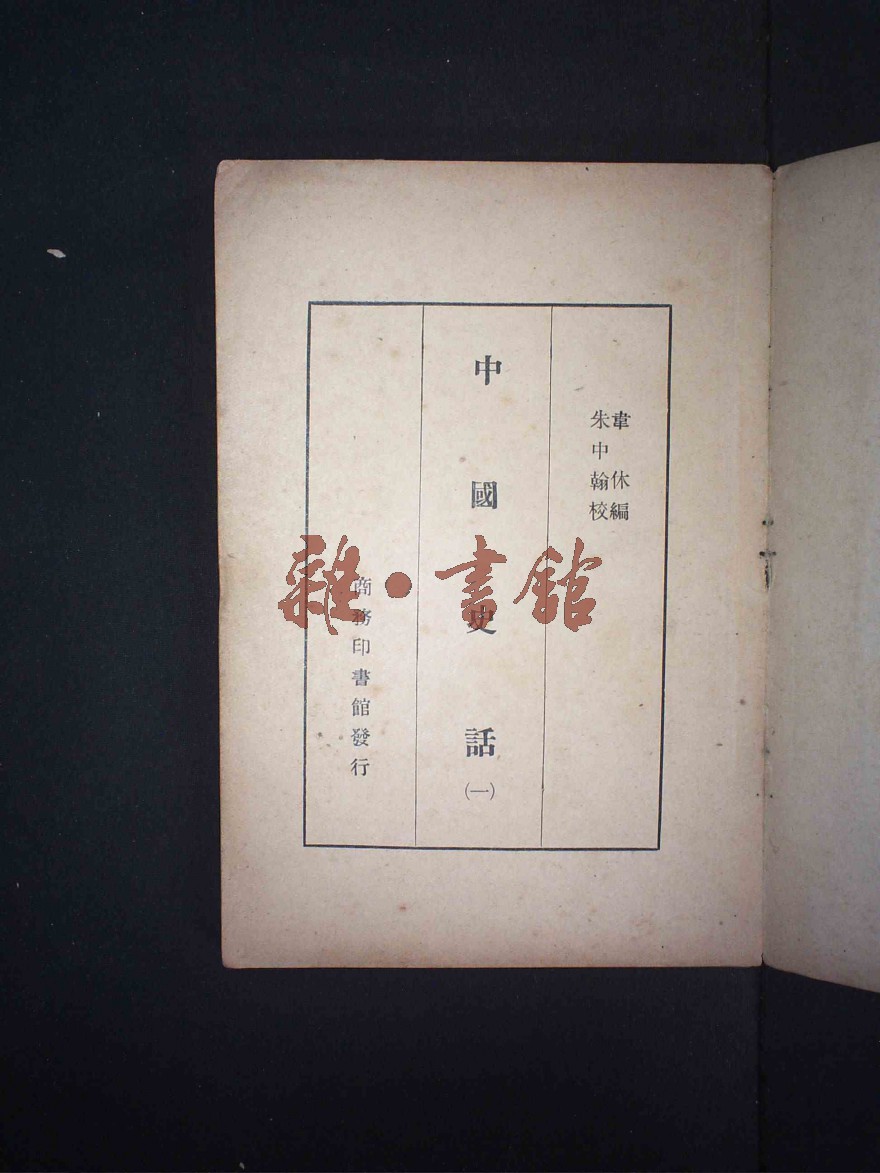 韋休編
朱中翰校
中國史話
(一)
商務印書館發行
雜·書館